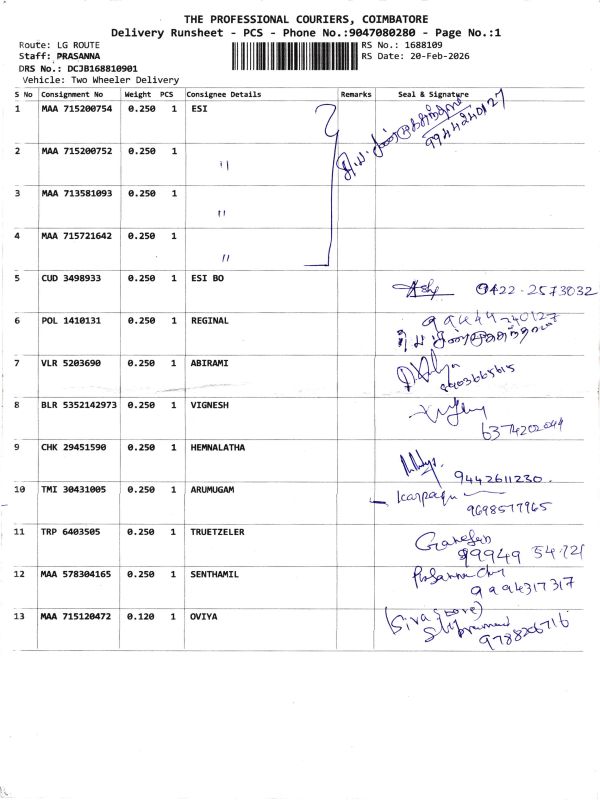 THE PROFESSIONAL COURIERS, COIMBATORE
Delivery Runsheet - PCS - Phone No.:9047080280 - Page No.:1
Route: LG ROUTE
Staff: PRASANNA
DRS No.: DCJB168810901
Vehicle: Two Wheeler Delivery
RS No.: 1688109
RS Date: 20-Feb-2026
S No Consignment No Weight PCS Consignee Details Remarks Seal & Signature
1 MAA 715200754 0.250 1 ESI 9944240127
2 MAA 715200752 0.250 1 "
3 MAA 713581093 0.250 1 "
4 MAA 715721642 0.250 1 "
5 CUD 3498933 0.250 1 ESI BO 0422-2573032
6 POL 1410131 0.250 1 REGINAL 99444240127
7 VLR 5203690 0.250 1 ABIRAMI 8903665615
8 BLR 5352142973 0.250 1 VIGNESH
6374202044
9 CHK 29451590 0.250 1 HEMNALATHA
9442611230
10 TMI 30431005 0.250 1 ARUMUGAM Karpagu
9698577965
11 TRP 6403505 0.250 1 TRUETZELER Ganesan
99949 54721
12 MAA 578304165 0.250 1 SENTHAMIL
9994317317
13 MAA 715120472 0.120 1 OVIYA (Siva Store)
9788206716